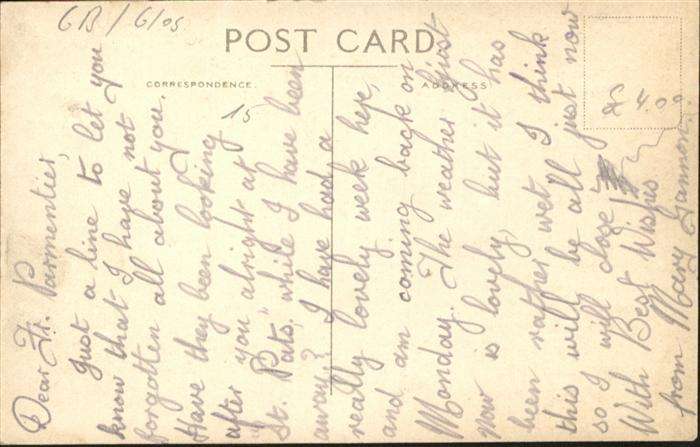 GB/G/05
POST CARD
CORRESPONDENCE.
ADDRESS
15
£4.00
Dear Fr. Parmentier,
Just a line to let you
know that I have not
forgotten all about you.
Have they been looking
after you alright at
"St. Pats," while I have been
away? I have had a
really lovely week here,
and am coming back on
Monday. The weather just
now is lovely, but it has
been rather wet. I think
this will be all just now
so I will close.
With Best Wishes
from Mary